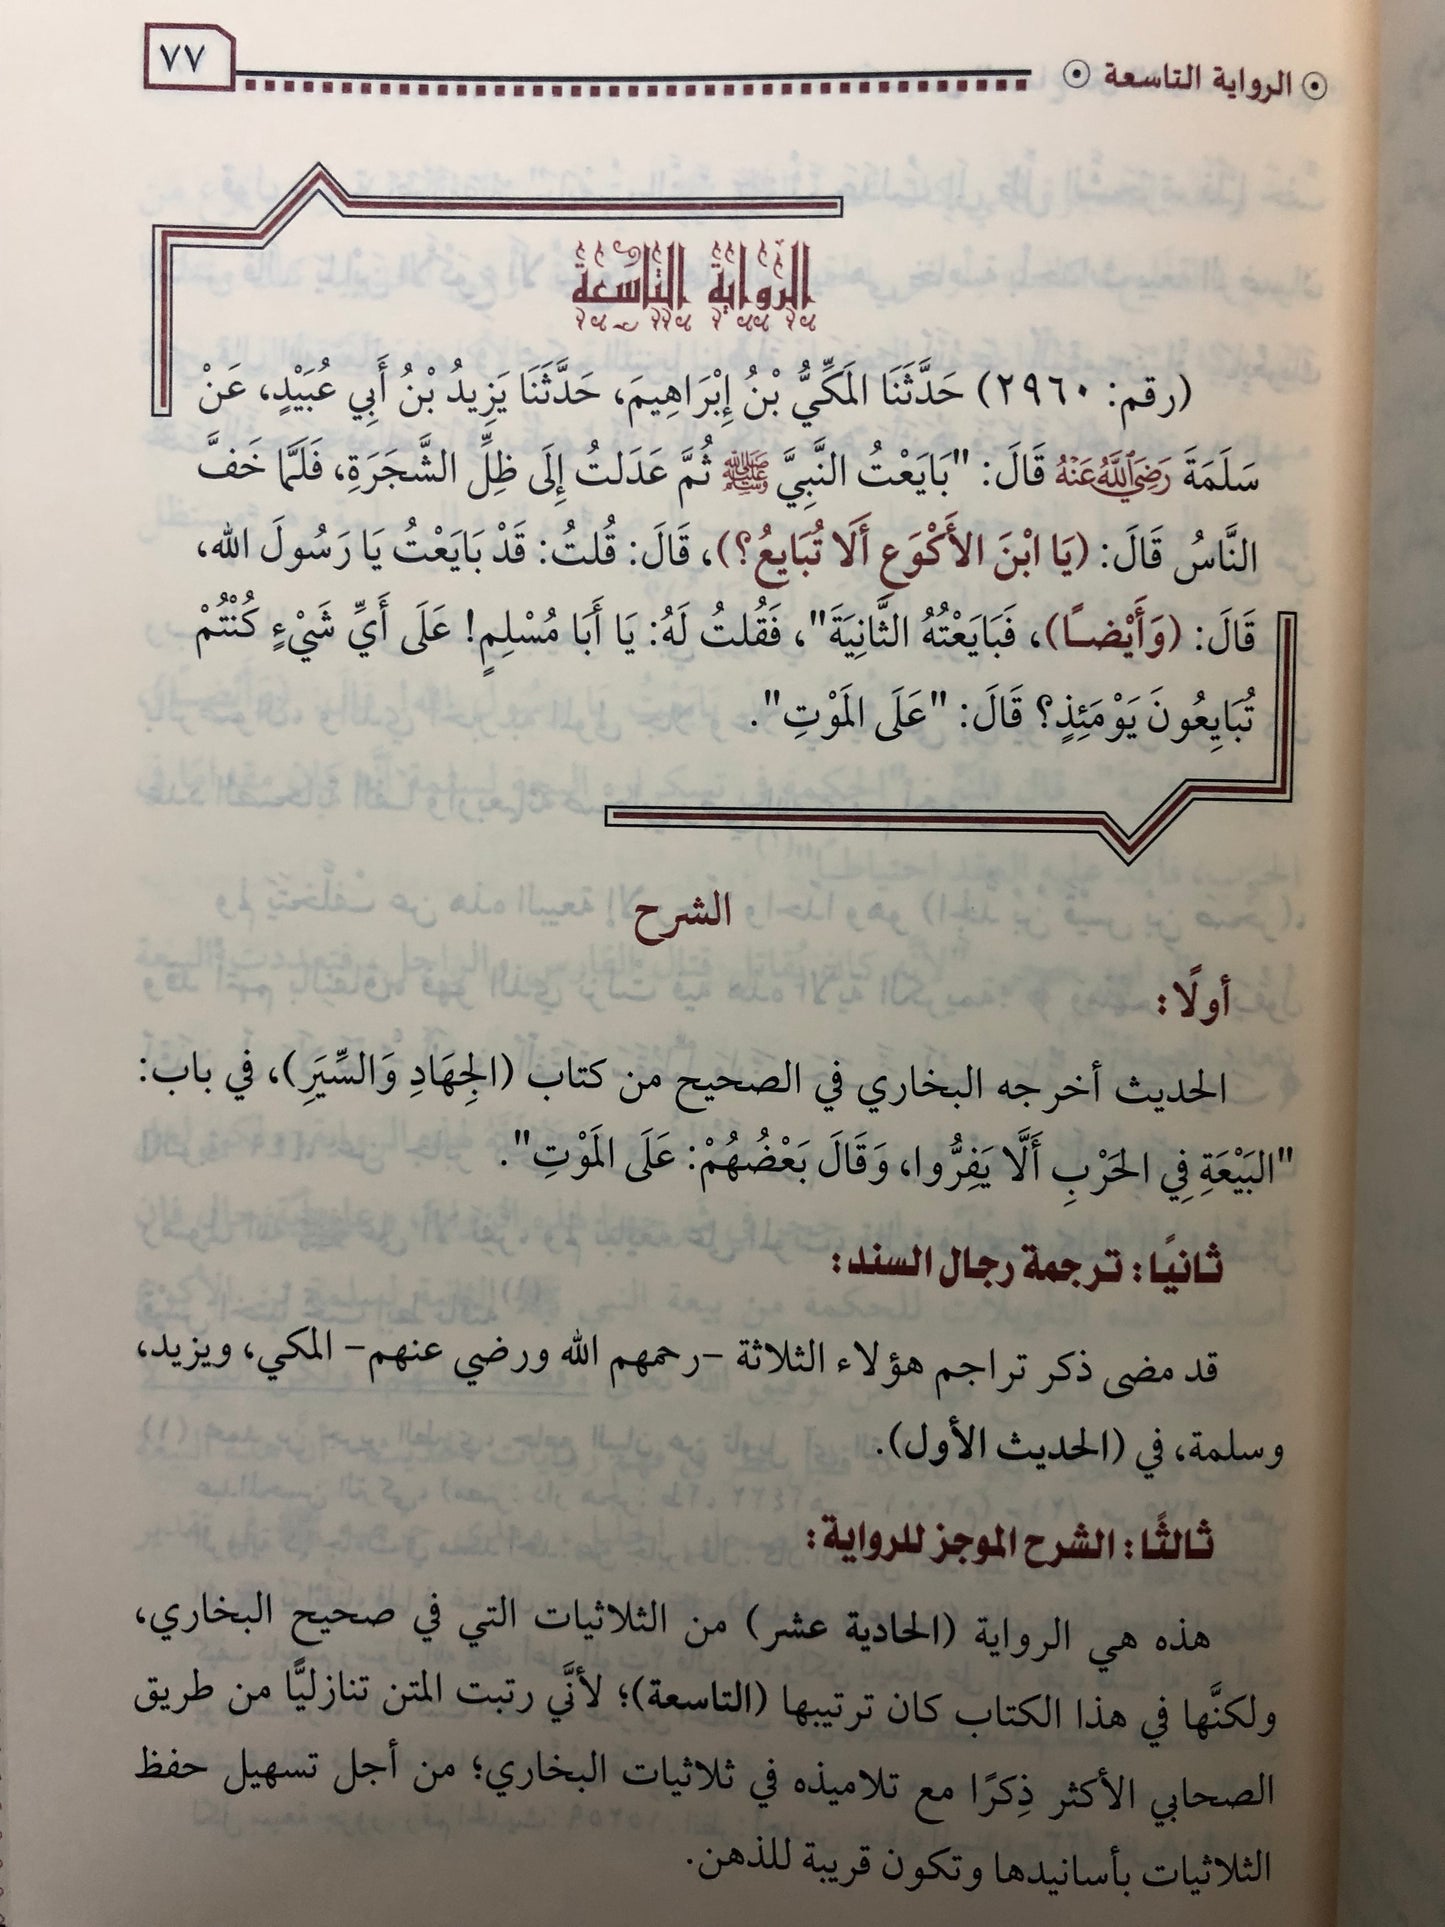 ⊙ الرواية التاسعة ⊙
٧٧
الرواية التاسعة
(رقم: ٢٩٦٠) حَدَّثَنَا المَكِّيُّ بْنُ إِبْرَاهِيمَ، حَدَّثَنَا يَزِيدُ بْنُ أَبِي عُبَيْدٍ، عَنْ
سَلَمَةَ رَضِيَ ٱللَّهُ عَنْهُ قَالَ: "بَايَعْتُ النَّبِيَّ ﷺ ثُمَّ عَدَلتُ إِلَى ظِلِّ الشَّجَرَةِ، فَلَمَّا خَفَّ
النَّاسُ قَالَ: (يَا ابْنَ الأَكْوَعِ أَلَا تُبَايعُ؟)، قَالَ: قُلتُ: قَدْ بَايَعْتُ يَا رَسُولَ الله،
قَالَ: (وَأَيْضـًا)، فَبَايَعْتُهُ الثَّانِيَةَ"، فَقُلتُ لَهُ: يَا أَبَا مُسْلِمٍ! عَلَى أَيِّ شَيْءٍ كُنْتُمْ
تُبَايِعُونَ يَوْمَئِذٍ؟ قَالَ: "عَلَى المَوْتِ".
الشرح
أولًا:
الحديث أخرجه البخاري في الصحيح من كتاب (الجِهَادِ وَالسِّيَرِ)، في باب:
"البَيْعَةِ فِي الحَرْبِ أَلَّا يَفِرُّوا، وَقَالَ بَعْضُهُمْ: عَلَى المَوْتِ".
ثانيًا: ترجمة رجال السند:
قد مضى ذكر تراجم هؤلاء الثلاثة -رحمهم الله ورضي عنهم- المكي، ويزيد،
وسلمة، في (الحديث الأول).
ثالثًا: الشرح الموجز للرواية:
هذه هي الرواية (الحادية عشر) من الثلاثيات التي في صحيح البخاري،
ولكنَّها في هذا الكتاب كان ترتيبها (التاسعة)؛ لأنَّي رتبت المتن تنازليًّا من طريق
الصحابي الأكثر ذِكرًا مع تلاميذه في ثلاثيات البخاري؛ من أجل تسهيل حفظ
الثلاثيات بأسانيدها وتكون قريبة للذهن.